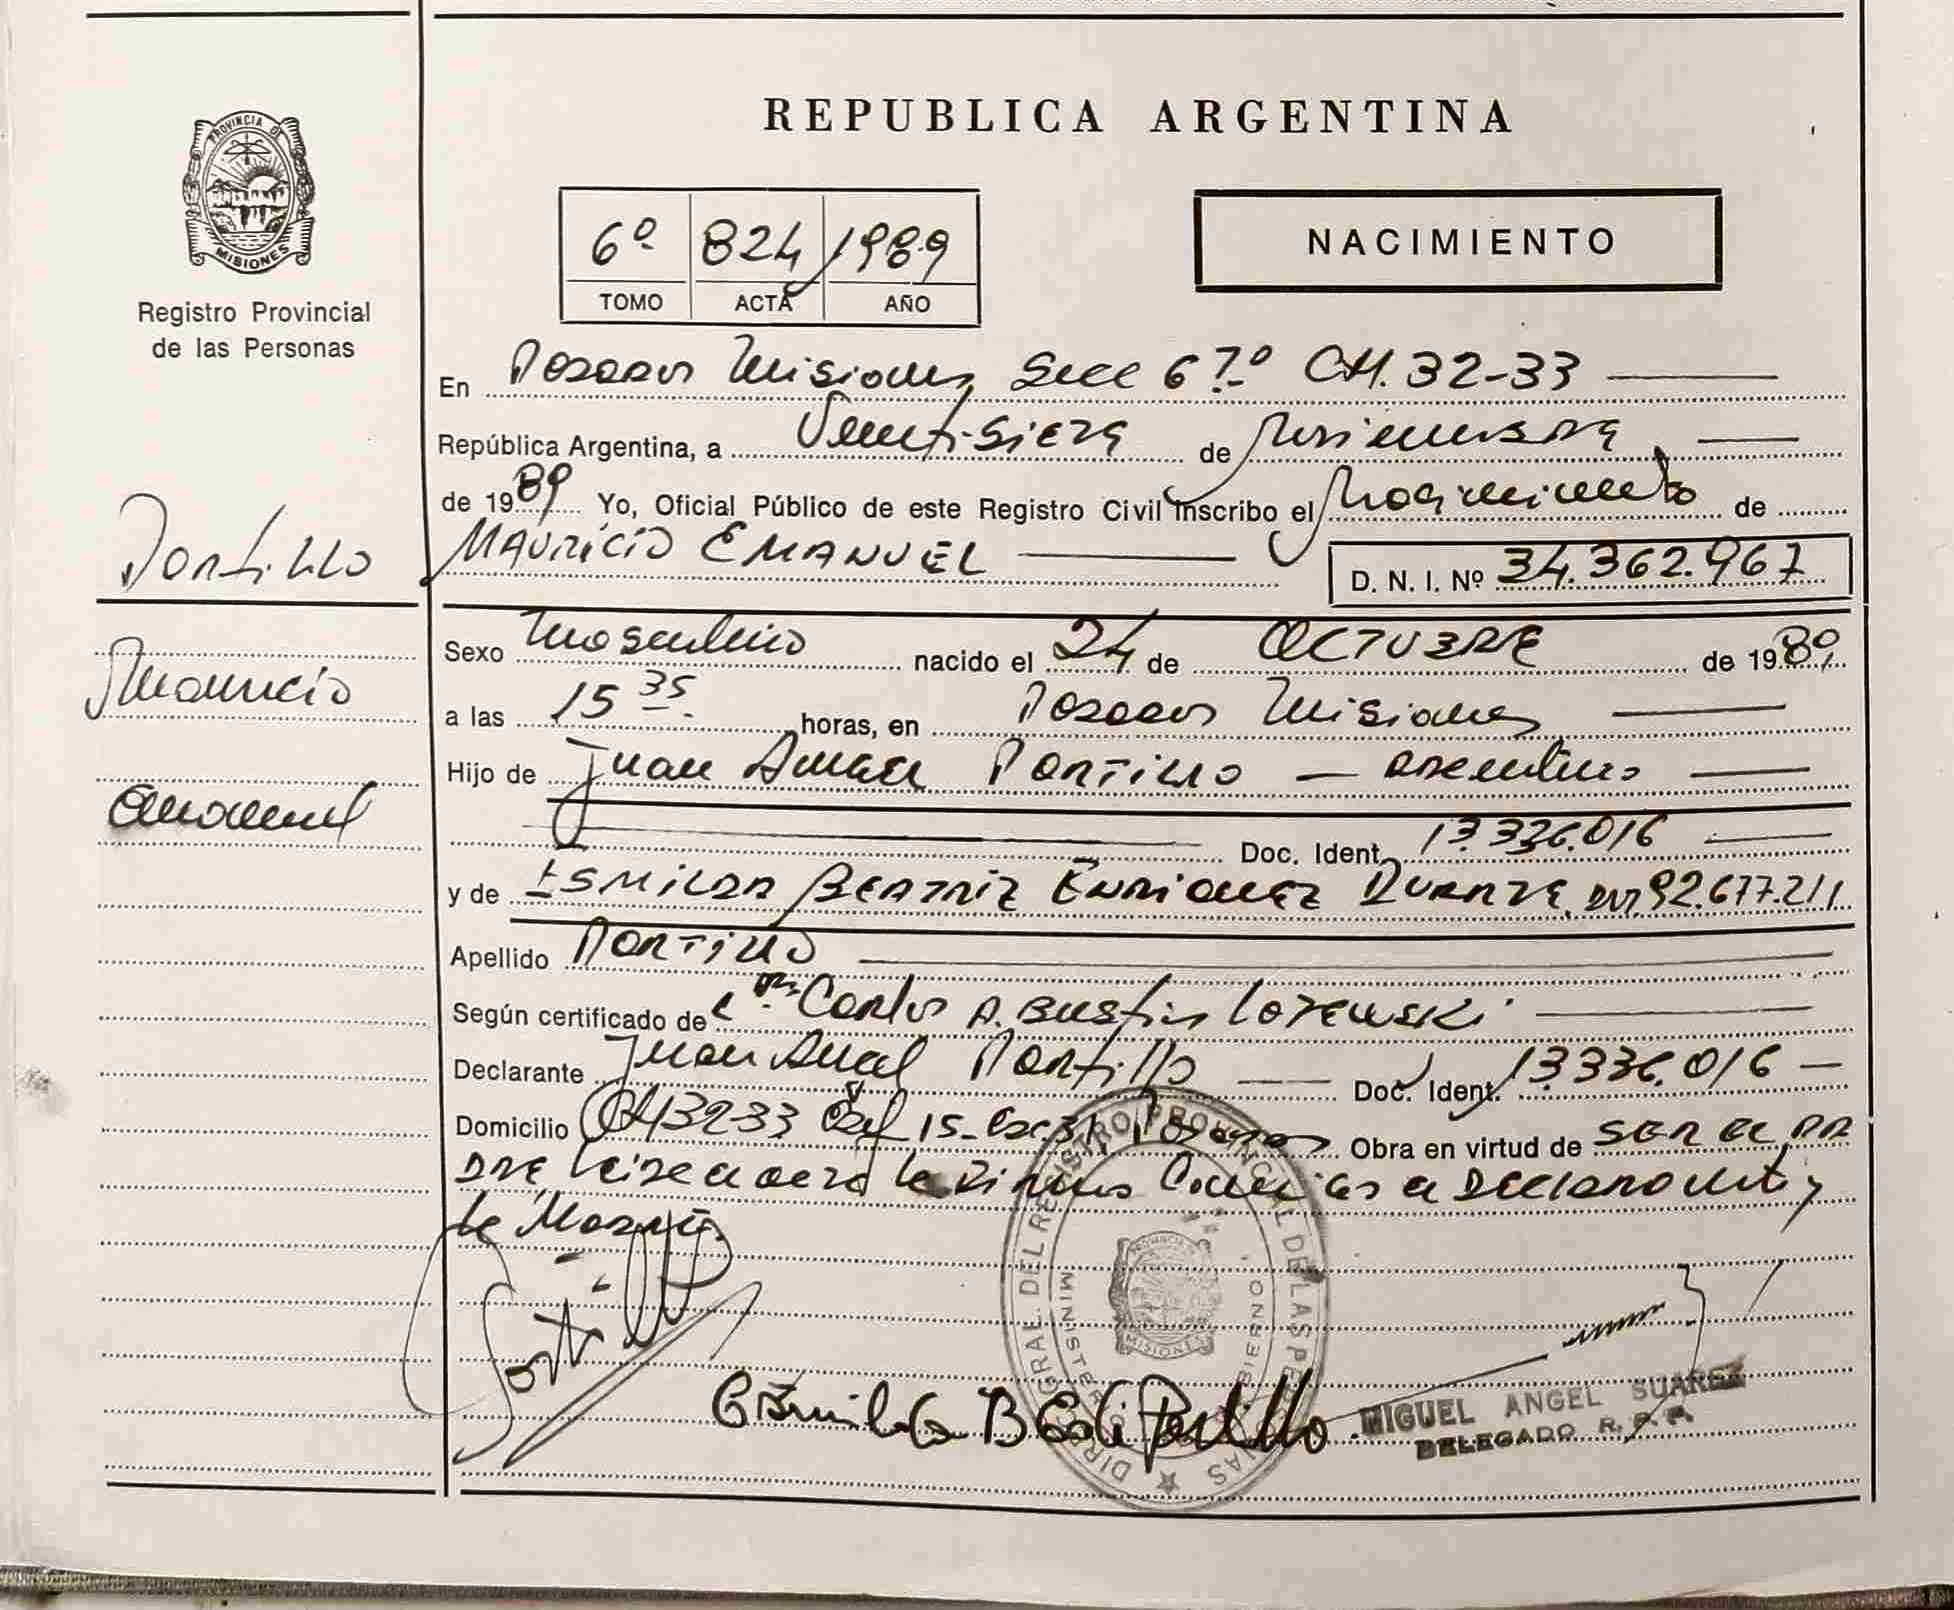 REPUBLICA ARGENTINA
PROVINCIA DE
MISIONES
Registro Provincial
de las Personas
6º 824 1989
TOMO ACTA AÑO
NACIMIENTO
En Posadas Misiones Secc 6 7º CH. 32-33
República Argentina, a Veintisiete de Noviembre
de 1989 Yo, Oficial Público de este Registro Civil Inscribo el Nacimiento de
MAURICIO EMANUEL
D. N. I. Nº 34.362.967
Portillo
Mauricio
Emanuel
Sexo Masculino nacido el 24 de OCTUBRE de 1989
a las 15 35 horas, en Posadas Misiones
Hijo de Juan Angel Portillo — argentino
Doc. Ident. 13.336.016
y de ESMILDA BEATRIZ ENRIQUEZ DUARTE, DNI 92.677.211
Apellido PORTILLO
Según certificado de Carlos A. Bustin
Declarante Juan Angel Portillo Doc. Ident. 13.336.016
Domicilio CH 32-33 15 Posadas Obra en virtud de SER EL PA
DRE, Leida el acta la firman el Declarante y
la Madre
Portillo
Esmilda B E de Portillo
DIRECCION GRAL. DEL REGISTRO PROVINCIAL DE LAS PERSONAS
MINISTERIO GOBIERNO
PROVINCIA DE
MISIONES
MIGUEL ANGEL SUAREZ
DELEGADO R. P. P.